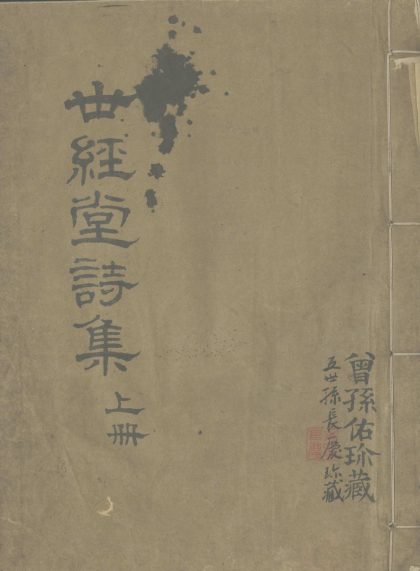 曾孫佑珍藏
五世孫長慶珍藏
世經堂詩集 上冊